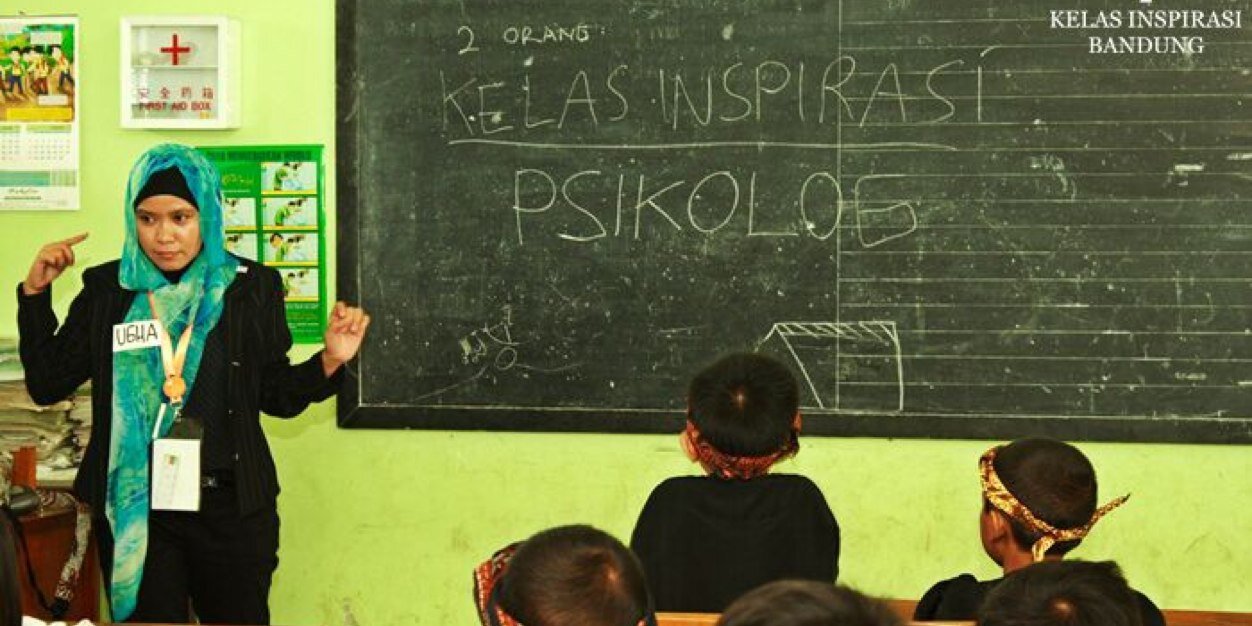 KELAS INSPIRASI
BANDUNG
2 ORANG
KELAS INSPIRASI
PSIKOLOG
安全药箱
FIRST AID BOX
UGHA